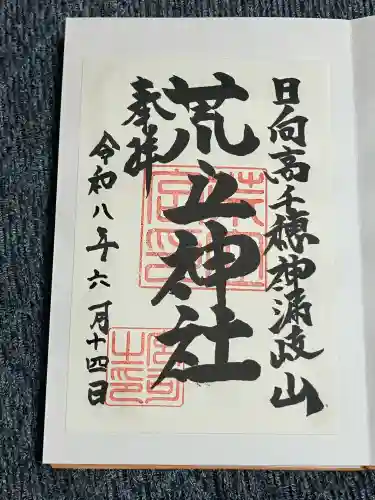 日向高千穂神漏岐山
荒立神社
奉拝
令和八年六月十四日